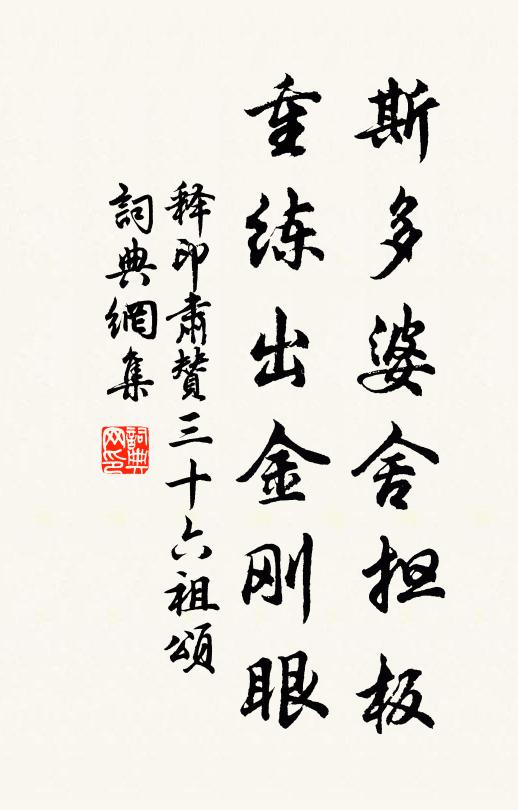 斯多婆舍担板
重练出金刚眼
释印肃赞三十六祖頌
詞典網集
詞典网印